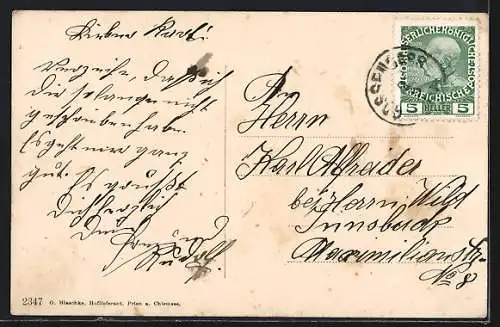 Lieber Karl!
Verzeihe, daß ich
Dir solange nicht
geschrieben habe.
Es geht mir ganz
gut. Es grüßt
Dich herzlich
Dein
Rudolf
An
Herrn
Karl
bei Herrn Wild
Innsbruck
Maximilianstr.
No 8
KAISERLICHE KÖNIGLICHE
ÖSTERREICHISCHE
5 HELLER 5
2347 O. Blaschke, Hoflieferant, Prien a. Chiemsee.